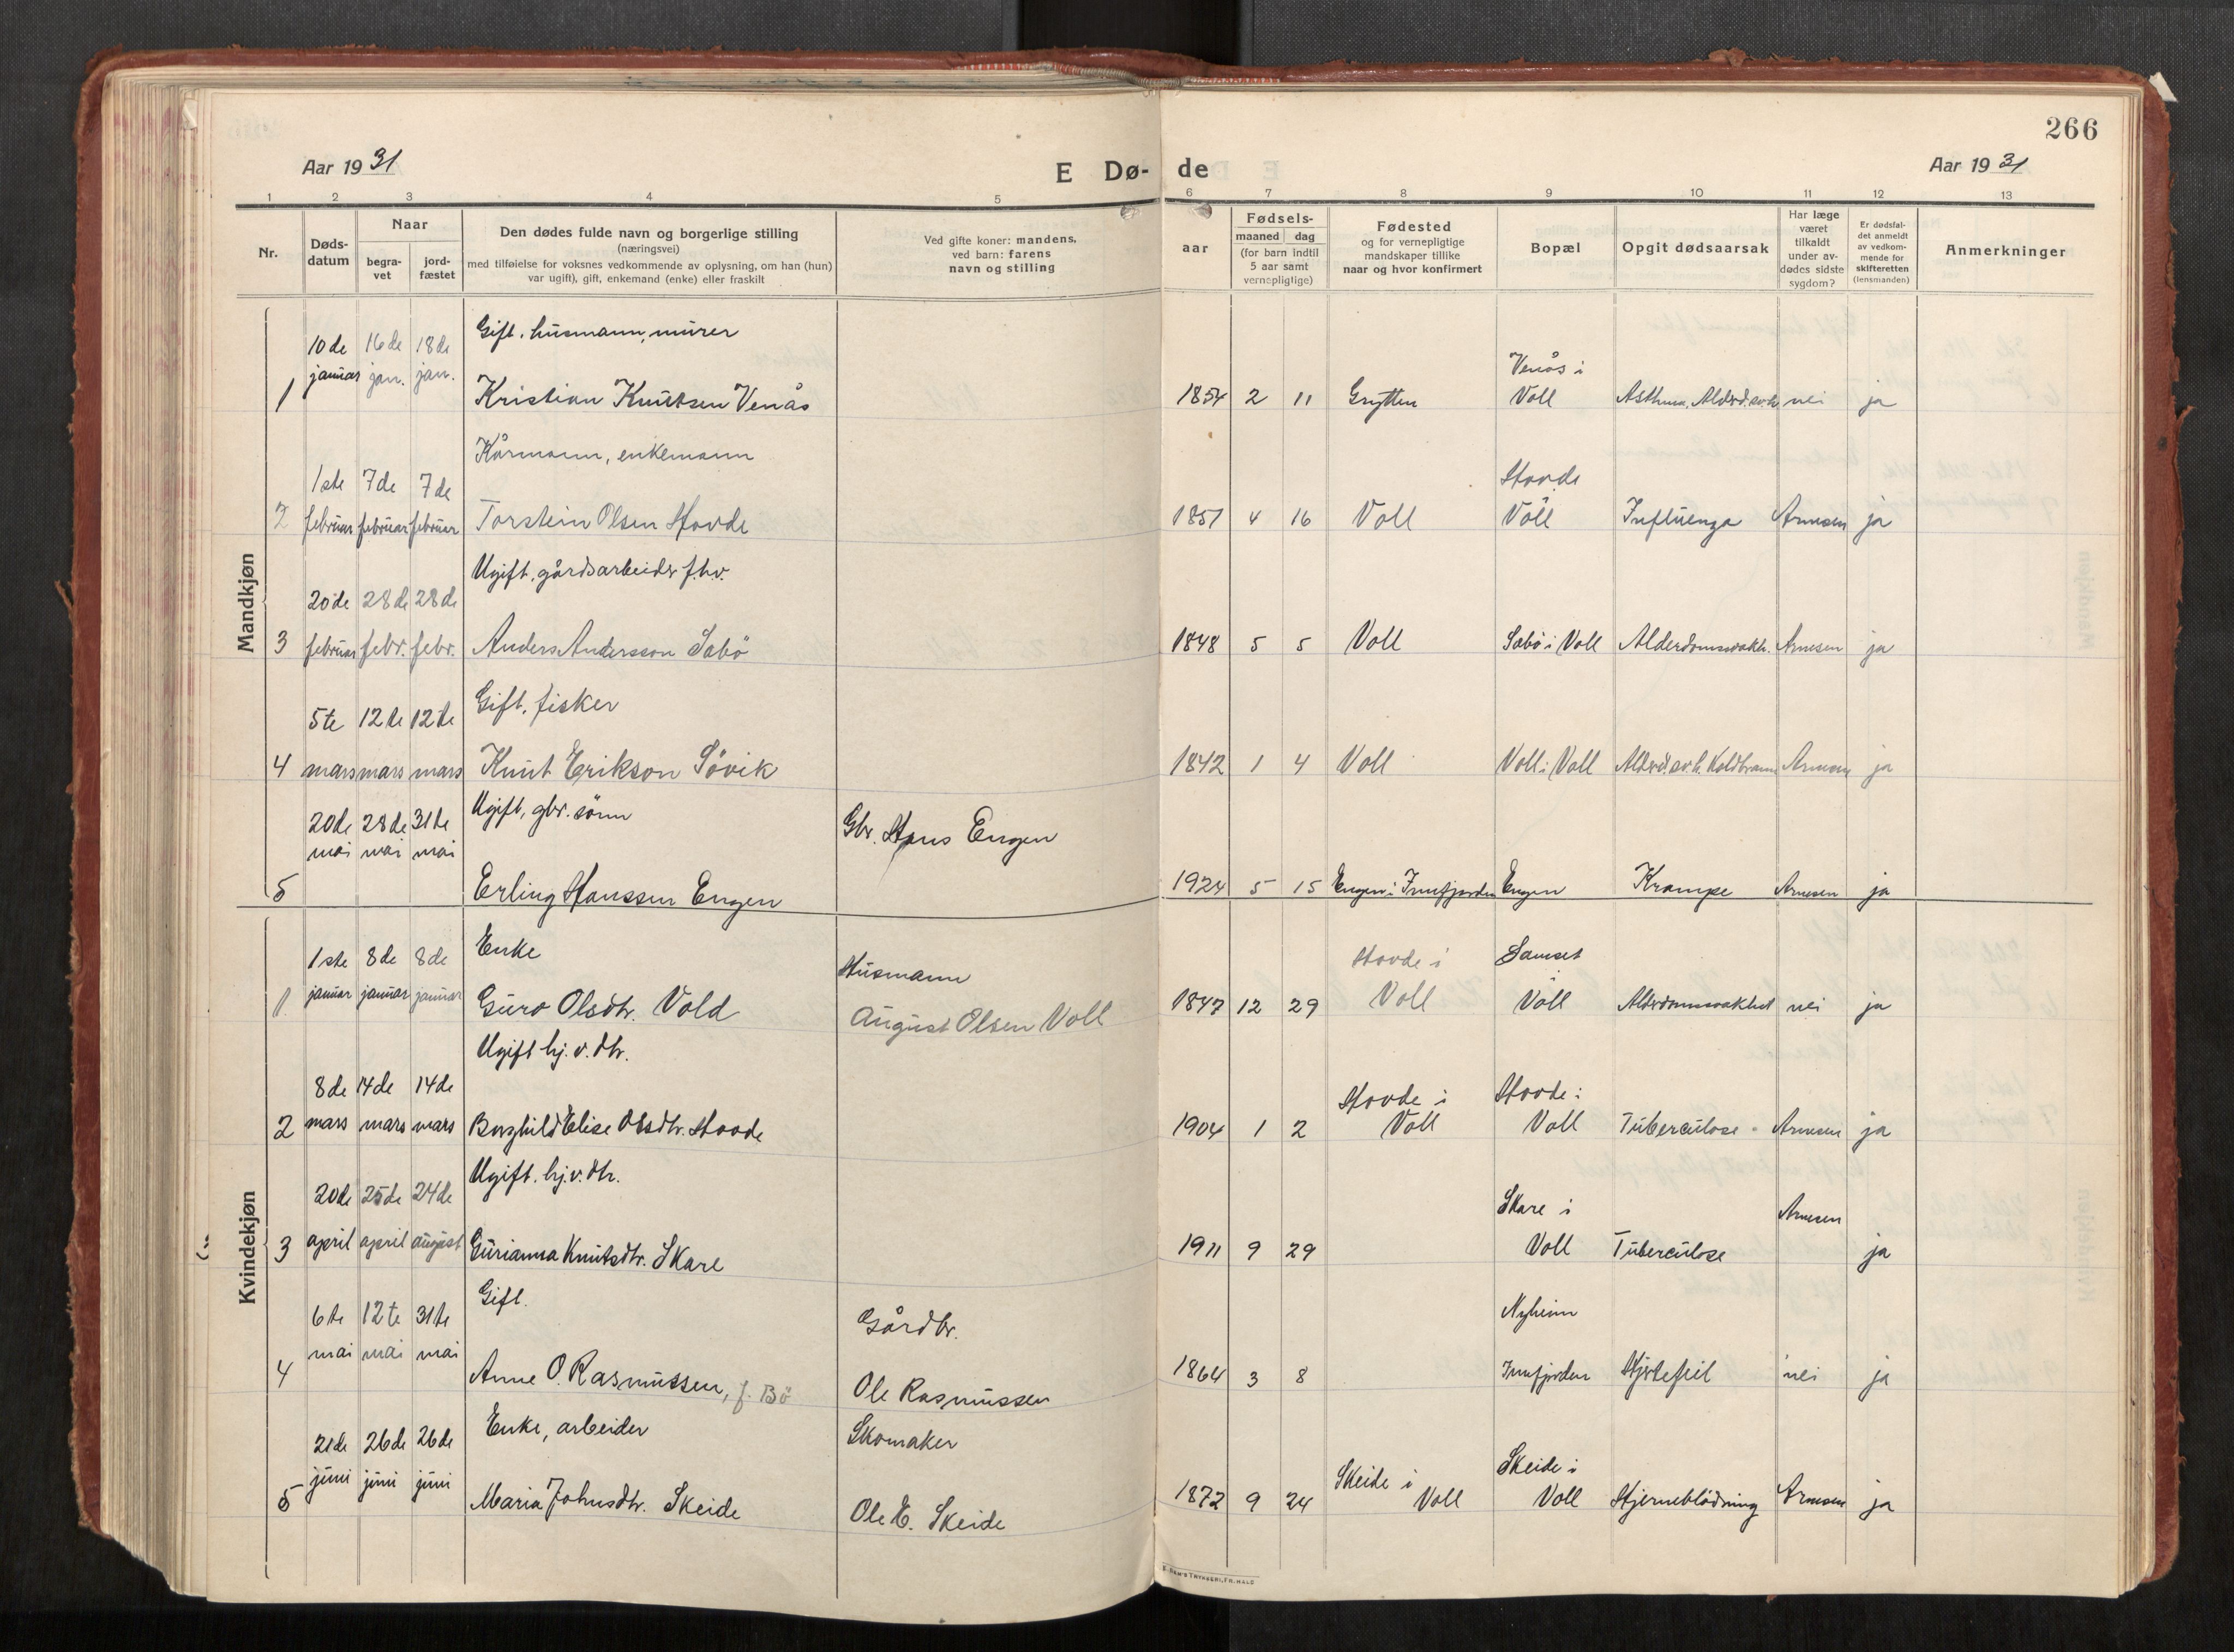 266
Aar 1931
E Dø-
de
Aar 1931
1 2 3 4 5 6 7 8 9 10 11 12 13
Nr.
Døds-
datum
Naar
begra-
vet
jord-
fæstet
Den dødes fulde navn og borgerlige stilling
(næringsvei)
med tilføielse for voksnes vedkommende av oplysning, om han (hun)
var ugift), gift, enkemand (enke) eller fraskilt
Ved gifte koner: mandens,
ved barn: farens
navn og stilling
aar
Fødsels-
maaned dag
(for barn indtil
5 aar samt
vernepligtige)
Fødested
og for vernepligtige
mandskaper tillike
naar og hvor konfirmert
Bopæl
Opgit dødsaarsak
Har læge
været
tilkaldt
under av-
dødes sidste
sygdom?
Er dødsfal-
det anmeldt
av vedkom-
mende for
skifteretten
(lensmanden)
Anmerkninger
Mandkjøn
Gift. husmann, murer
10de 16de 18de
januar jan. jan.
Venås i
1 Kristian Knutsen Venås 1854 2 11 Grytten Voll Asthma, Alderd.svh. nei ja
Kårmann, enkemann
1ste 7de 7de
Hovde
2 februar februar februar Torstein Olsen Hovde 1851 4 16 Voll Voll Influenza Arnesen ja
Ugift, gårdsarbeider f.h.v.
20de 28de 28de
3 februar febr. febr. Anders Andersson Sabö 1848 5 5 Voll Sabö i Voll Alderdomssvakh. Arnesen ja
Gift, fisker
5te 12te 12te
4 mars mars mars Knut Erikson Sövik 1842 1 4 Voll Voll i Voll Alderd.sv.h. Koldbrann Arnesen ja
Ugift, gbr. sönn
20de 28de 31te
mai mai mai
Gbr. Hans Engen
5 Erling Hanssen Engen 1924 5 15 Engen i Innfjorden Engen Krampe Arnesen ja
Kvindekjøn
Enke
1ste 8de 8de
Husmann
Hovde i Samset
1 januar januar januar Guro Olsdtr. Vold August Olsen Voll 1847 12 29 Voll Voll Alderdomssvakhet nei ja
Ugift hj. v. dtr.
8de 14de 14de
Hovde i Hovde i
2 mars mars mars Borghild Elise Olsdtr. Hovde 1904 1 2 Voll Voll Tuberculose Arnesen ja
Ugift. hj.v. dtr.
20de 25de 24de
Skare i Arnesen
3 april april august Gurianna Knutsdtr. Skare 1911 9 29 Voll Tuberculose ja
Gift.
6te 12te 31te
Gårdbr.
Nyheim
mai mai mai
4 Anne O. Rasmussen, f. Bö Ole Rasmussen 1864 3 8 Innfjorden Hjertefeil nei ja
Enke, arbeider
Skomaker
21de 26de 26de
juni juni juni
Skeide i Skeide i
5 Maria Johnsdtr. Skeide Ole E. Skeide 1872 9 24 Voll Voll Hjerneblödning Arnesen ja